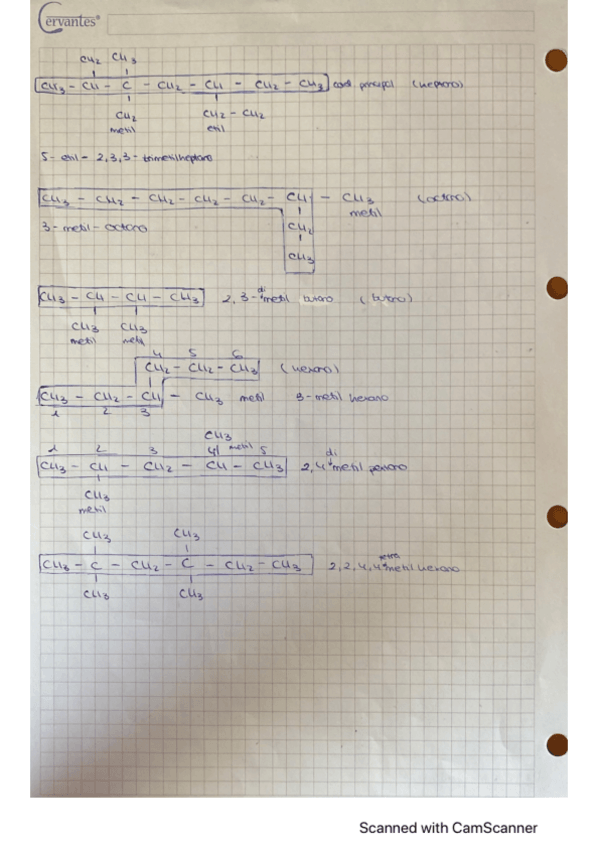 Cervantes®
CH2 CH3
CH3 - CH - C - CH2 - CH - CH2 - CH3 cad principal (heptano)
CH2 CH2 - CH2
metil etil
5 - etil - 2,3,3 - trimetilheptano
CH3 - CH2 - CH2 - CH2 - CH2 - CH - CH3 (octano)
metil
3 - metil - octano CH2
CH3
CH3 - CH - CH - CH3 2,3 - di metil butano (butano)
CH3 CH3
metil metil
4 5 6
CH2 - CH2 - CH3 (hexano)
CH3 - CH2 - CH - CH3 metil 3 - metil hexano
1 2 3
CH3
1 2 3 4 metil 5 di
CH3 - CH - CH2 - CH - CH3 2,4 metil pentano
CH3
metil
CH3 CH3
tetra
CH3 - C - CH2 - C - CH2 - CH3 2,2,4,4 metil hexano
CH3 CH3
Scanned with CamScanner